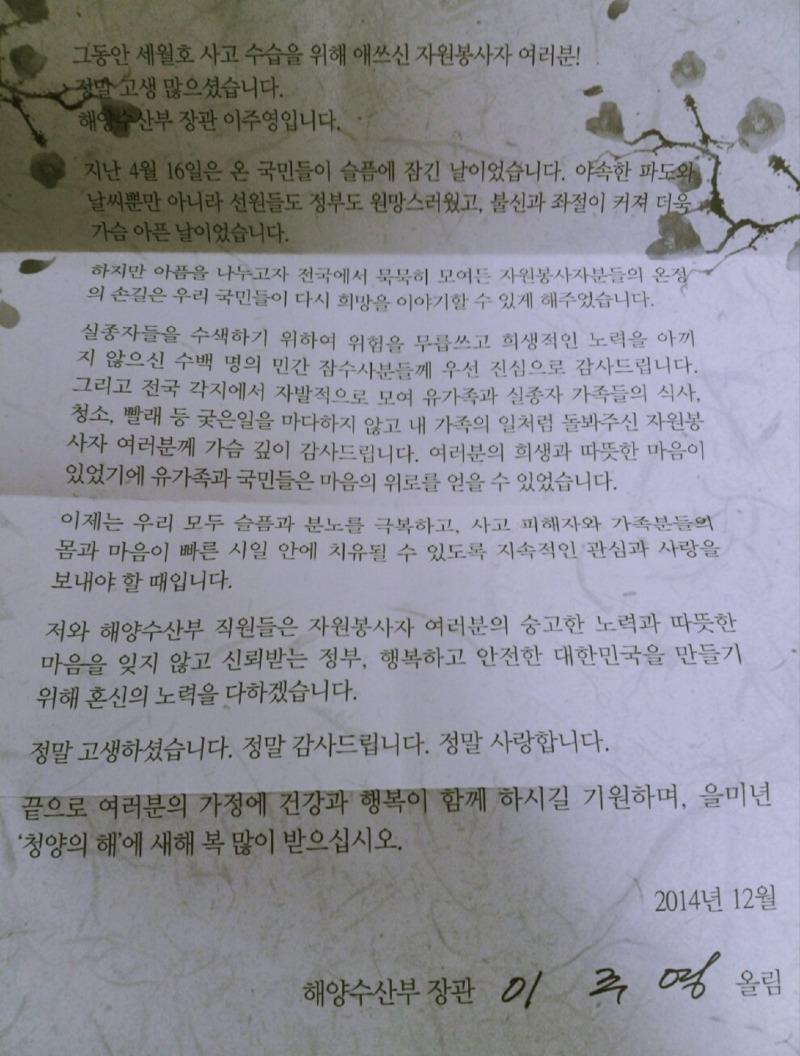 그동안 세월호 사고 수습을 위해 애쓰신 자원봉사자 여러분!
정말 고생 많으셨습니다.
해양수산부 장관 이주영입니다.
지난 4월 16일은 온 국민들이 슬픔에 잠긴 날이었습니다. 야속한 파도와
날씨뿐만 아니라 선원들도 정부도 원망스러웠고, 불신과 좌절이 커져 더욱
가슴 아픈 날이었습니다.
하지만 아픔을 나누고자 전국에서 묵묵히 모여든 자원봉사자분들의 온정
의 손길은 우리 국민들이 다시 희망을 이야기할 수 있게 해주었습니다.
실종자들을 수색하기 위하여 위험을 무릅쓰고 희생적인 노력을 아끼
지 않으신 수백 명의 민간 잠수사분들께 우선 진심으로 감사드립니다.
그리고 전국 각지에서 자발적으로 모여 유가족과 실종자 가족들의 식사,
청소, 빨래 등 궂은일을 마다하지 않고 내 가족의 일처럼 돌봐주신 자원봉
사자 여러분께 가슴 깊이 감사드립니다. 여러분의 희생과 따뜻한 마음이
있었기에 유가족과 국민들은 마음의 위로를 얻을 수 있었습니다.
이제는 우리 모두 슬픔과 분노를 극복하고, 사고 피해자와 가족분들의
몸과 마음이 빠른 시일 안에 치유될 수 있도록 지속적인 관심과 사랑을
보내야 할 때입니다.
저와 해양수산부 직원들은 자원봉사자 여러분의 숭고한 노력과 따뜻한
마음을 잊지 않고 신뢰받는 정부, 행복하고 안전한 대한민국을 만들기
위해 혼신의 노력을 다하겠습니다.
정말 고생하셨습니다. 정말 감사드립니다. 정말 사랑합니다.
끝으로 여러분의 가정에 건강과 행복이 함께 하시길 기원하며, 을미년
‘청양의 해’에 새해 복 많이 받으십시오.
2014년 12월
해양수산부 장관 이 주 영 올림